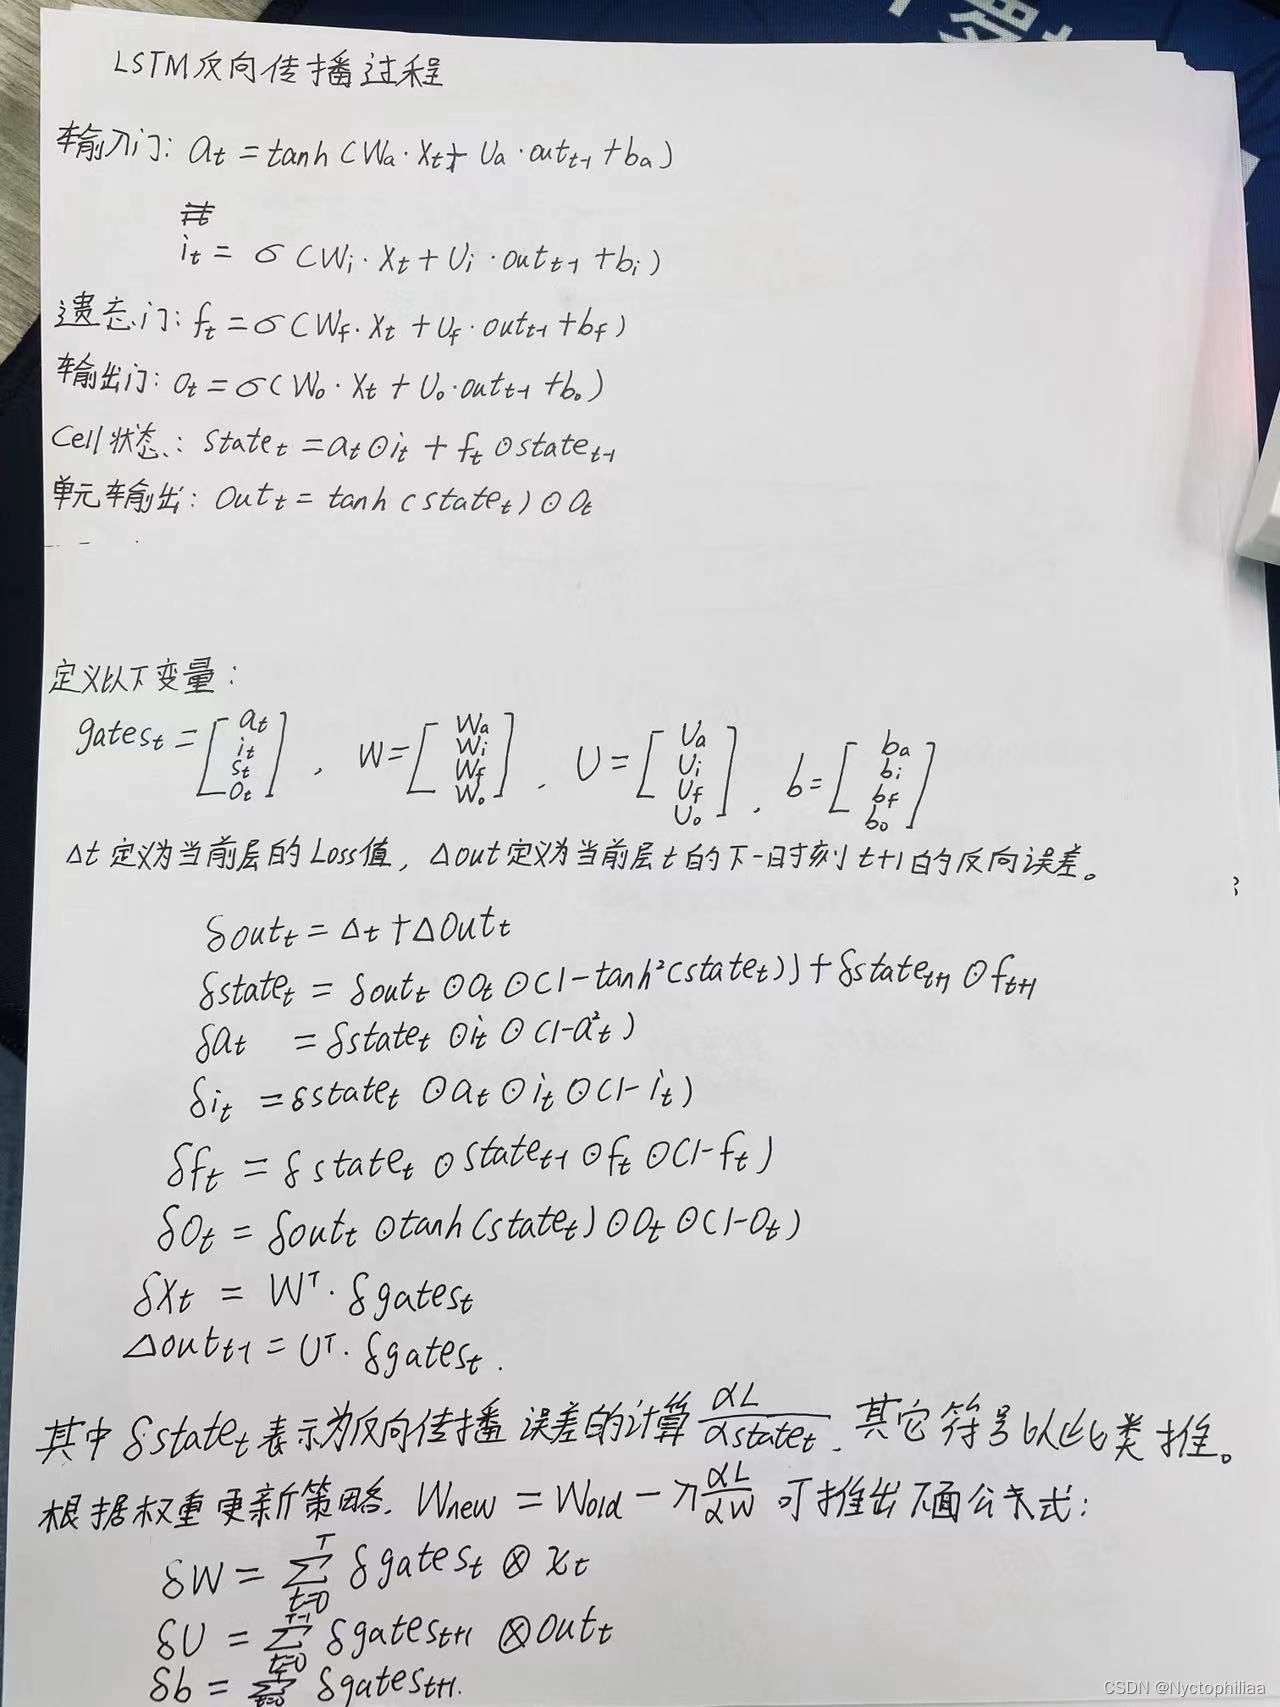 LSTM反向传播过程
输入门: a_t = tanh(W_a·X_t + U_a·out_{t-1} + b_a)
i_t = σ(W_i·X_t + U_i·out_{t-1} + b_i)
遗忘门: f_t = σ(W_f·X_t + U_f·out_{t-1} + b_f)
输出门: O_t = σ(W_o·X_t + U_o·out_{t-1} + b_o)
Cell状态: state_t = a_t⊙i_t + f_t⊙state_{t-1}
单元输出: out_t = tanh(state_t)⊙O_t
定义以下变量:
gates_t = [a_t i_t s_t O_t], W = [W_a W_i W_f W_o], U = [U_a U_i U_f U_o], b = [b_a b_i b_f b_o]
Δt定义为当前层的Loss值, Δout定义为当前层t的下一时刻t+1的反向误差。
δout_t = Δ_t + Δout_t
δstate_t = δout_t⊙O_t⊙(1-tanh²(state_t)) + δstate_{t+1}⊙f_{t+1}
δa_t = δstate_t⊙i_t⊙(1-a²_t)
δi_t = δstate_t⊙a_t⊙i_t⊙(1-i_t)
δf_t = δstate_t⊙state_{t-1}⊙f_t⊙(1-f_t)
δO_t = δout_t⊙tanh(state_t)⊙O_t⊙(1-O_t)
δX_t = W^T·δgates_t
Δout_{t-1} = U^T·δgates_t.
其中δstate_t表示为反向传播误差的计算 αL/αstate_t, 其它符号以此类推。
根据权重更新策略, W_new = W_old - λ αL/αW 可推出下面公式:
δW = Σ_{t=0}^{T} δgates_t ⊗ x_t
δU = Σ_{t=0}^{T-1} δgates_{t+1} ⊗ out_t
δb = Σ_{t=0}^{T} δgates_{t+1}.
CSDN @Nyctophiliaa